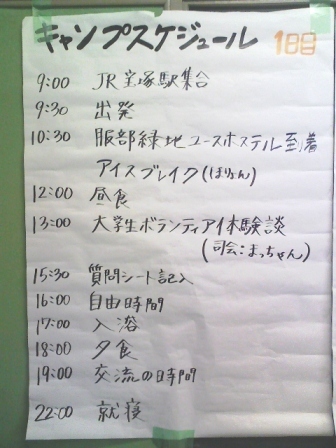 キャンプスケジュール 1日目
9:00 JR宝塚駅集合
9:30 出発
10:30 服部緑地ユースホステル到着
アイスブレイク(ぽりょん)
12:00 昼食
13:00 大学生ボランティア体験談
(司会:まっちゃん)
15:30 質問シート記入
16:00 自由時間
17:00 入浴
18:00 夕食
19:00 交流の時間
22:00 就寝